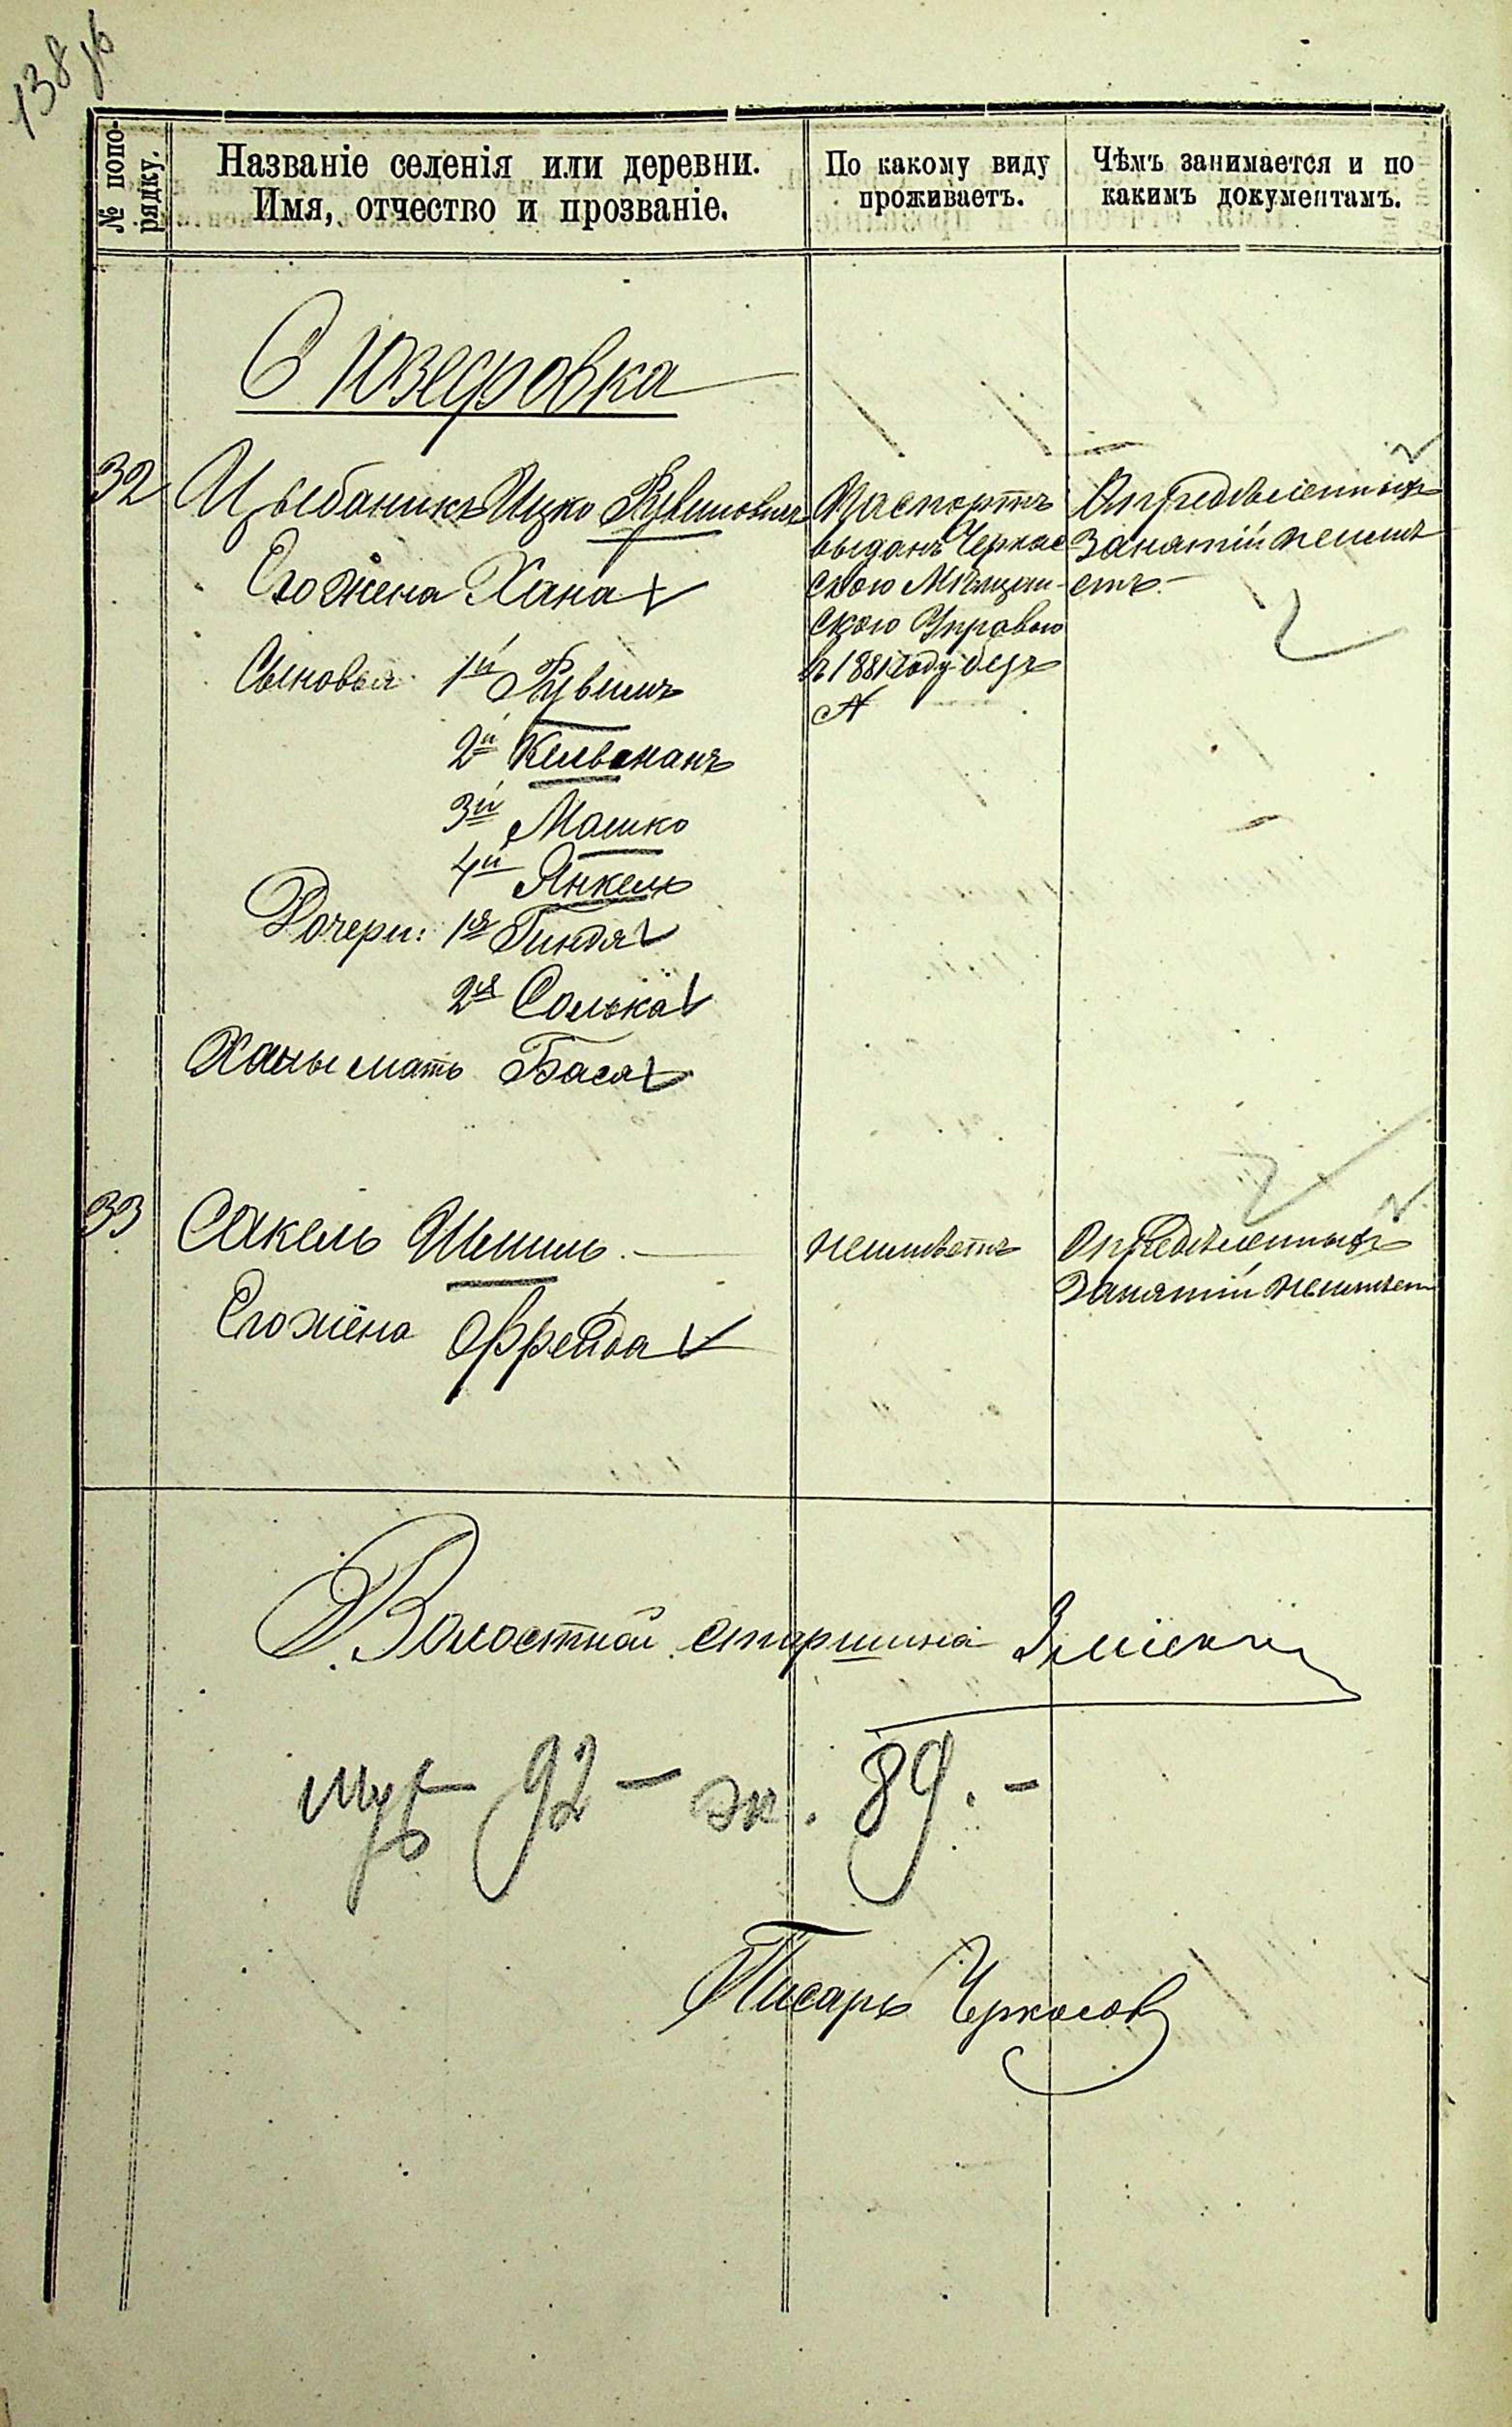 138 об
№ по по-
рядку.
Названіе селенія или деревни.
Имя, отчество и прозваніе.
По какому виду
проживаетъ.
Чѣмъ занимается и по
какимъ документамъ.
С Юзефовка
32 Цыбаникъ Ицко Рувиновичъ
Его жена Хана
Сыновья 1й Рувинъ
2й Кельманъ
3й Мошко
4й Янкель
Дочери: 1я Гиндя
2я Солька
Ханы мать Бася
Паспортъ
выданъ Черкас
скою Мѣщан-
скою Управою
въ 1881 году безъ
№
Опредѣленныхъ
занятій неимѣ
етъ.
33 Сакель Шмиль.
Его жена Фрейда
неимѣетъ
Опредѣленныхъ
занятій неимѣет
Волостной старшина
муж 92 - ж. 89. -
Писарь Черкасов